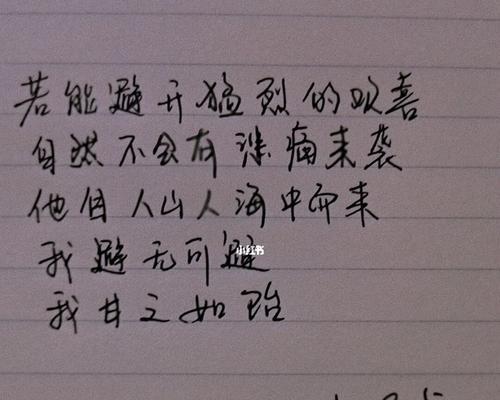 若能避开猛烈的欢喜
自然不会有悲痛来袭
他自人山人海中而来
小红书
我避无可避
我甘之如饴